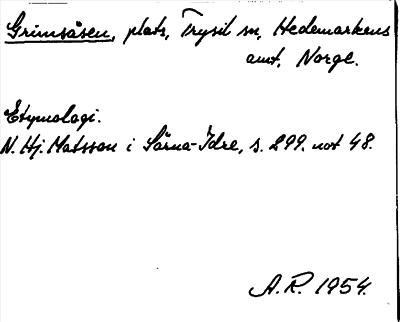 Grimsåsen, plats, Trysil sn, Hedemarkens
amt, Norge.
Etymologi.
N. Hj. Matsson i Särna-Idre, s. 299. not 48.
A.R. 1954.